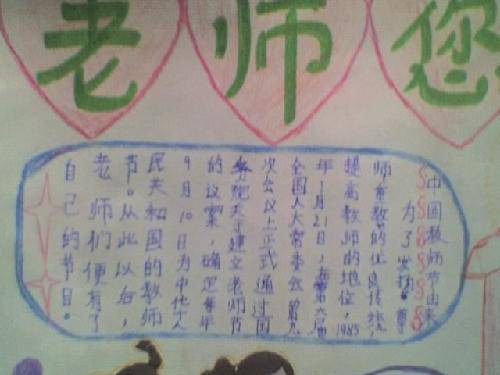 老师您
中国教师节由来
为了发扬“尊
师重教”的优良传统，
提高教师的地位，1985
年1月21日，在第六届
全国人大常委会第九
次会议上正式通过国
务院关于建立老师节
的议案，确定每年
9月10日为中华人
民共和国的教师
节。从此以后，
老师们便有了
自己的节日。